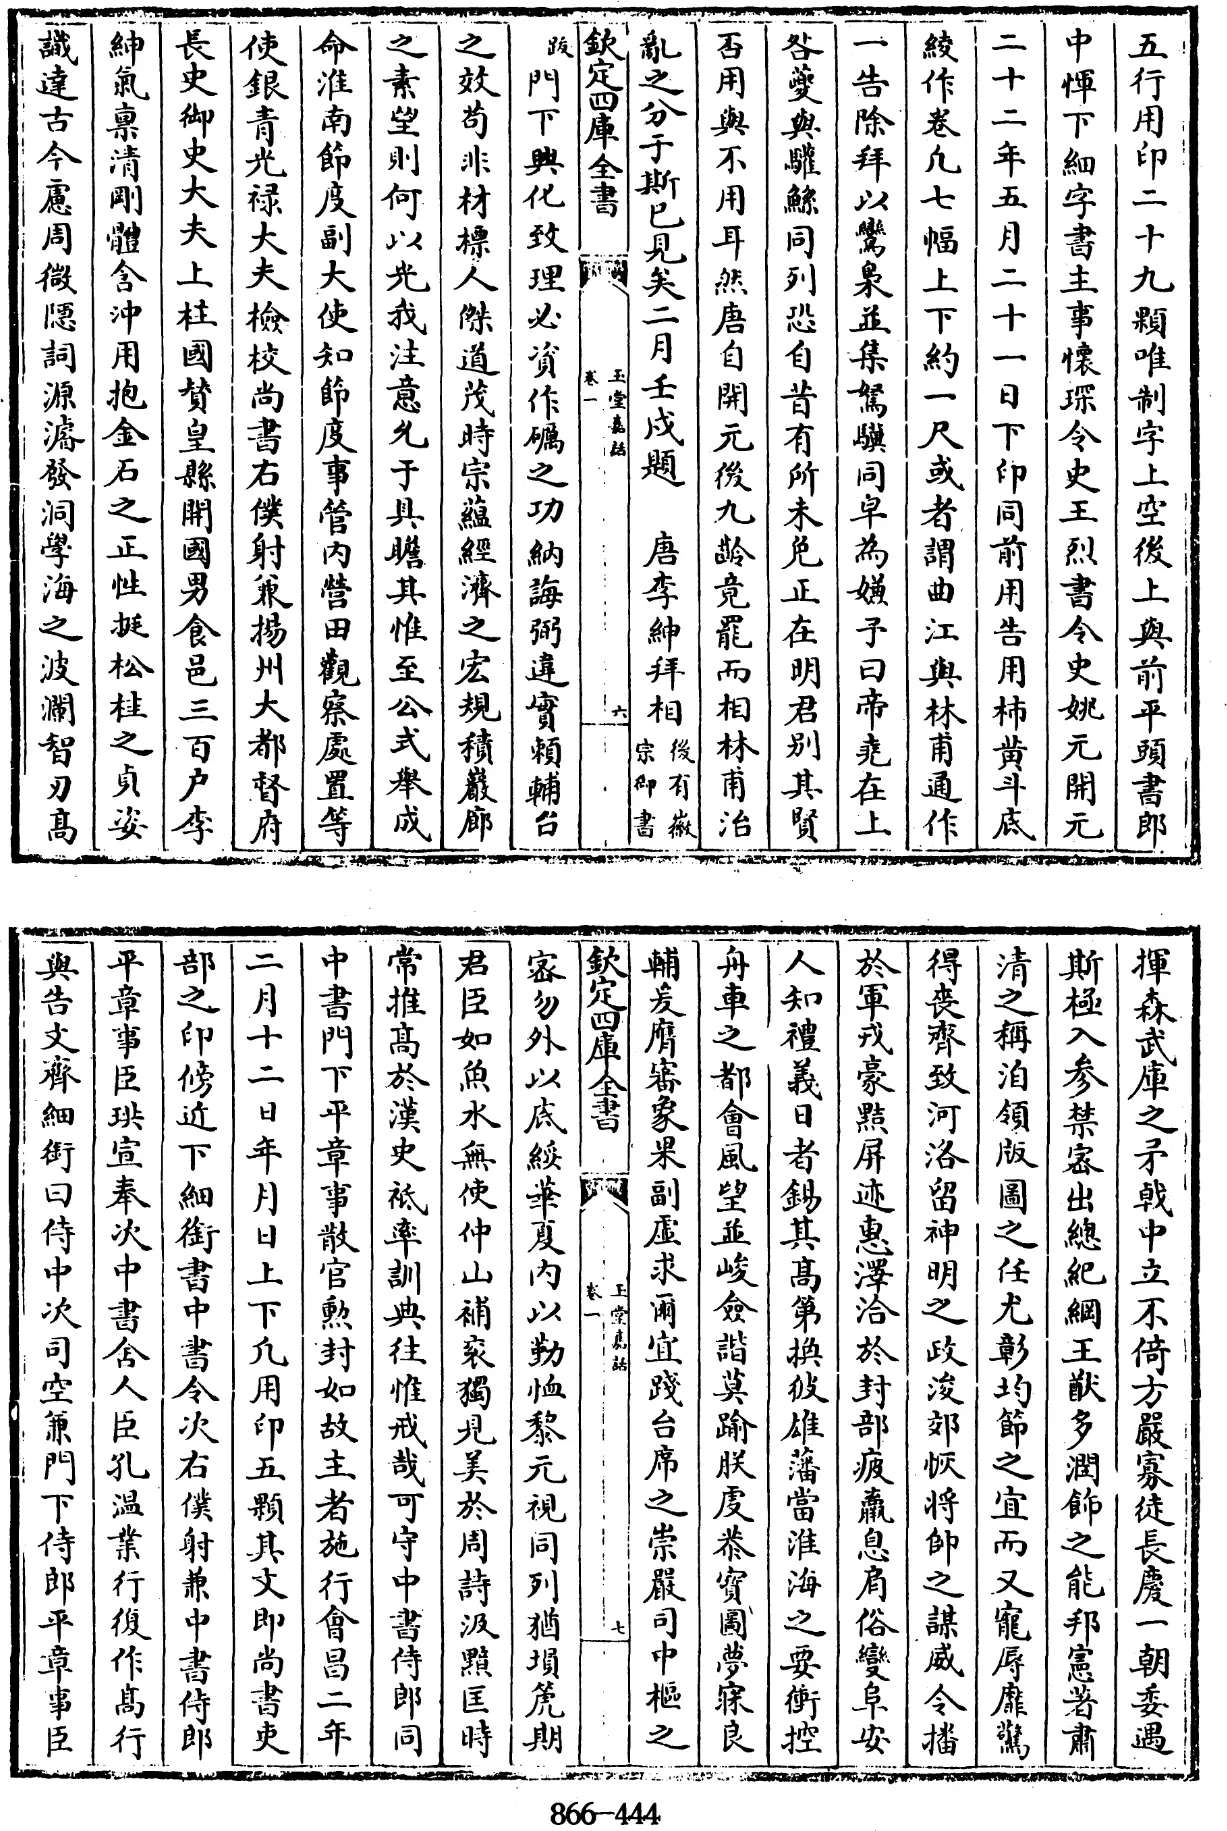 五行用印二十九顆唯制字上空後上與前平頭書郎
中惲下細字書主事懐琛令史王烈書令史姚元開元
二十二年五月二十一日下印同前用告用柿黄斗底
綾作卷凡七幅上下約一尺或者謂曲江與林甫通作
一告除拜以鸞梟並集駑驥同皁為嫌予曰帝堯在上
咎䕫與驩鯀同列恐自昔有所未免正在明君别其賢
否用與不用耳然唐自開元後九齡竟罷而相林甫治
亂之分于斯已見矣二月壬戌題　唐李紳拜相後有徽宗御書
欽定四庫全書　玉堂嘉話　卷一　六
跋門下興化致理必資作礪之功納誨弼違實頼輔台
之效苟非材標人傑道茂時宗藴經濟之宏規積巖廊
之素望則何以光我注意允于具瞻其惟至公式舉成
命淮南節度副大使知節度事管内營田觀察處置等
使銀青光禄大夫檢校尚書右僕射兼揚州大都督府
長史御史大夫上柱國賛皇縣開國男食邑三百户李
紳氣禀清剛體含沖用抱金石之正性挺松桂之貞姿
識達古今慮周微隱詞源濬發洞學海之波瀾智刃髙
揮森武庫之矛戟中立不倚方嚴寡徒長慶一朝委遇
斯極入參禁宻出總紀綱王猷多潤飾之能邦憲著肅
清之稱洎領版圖之任尤彰均節之宜而又寵辱靡驚
得喪齊致河洛留神明之政浚郊恢將帥之謀威令播
於軍戎豪黠屏迹惠澤洽於封部疲羸息肩俗變阜安
人知禮義日者錫其髙第換彼雄藩當淮海之要衝控
舟車之都會風望並峻僉諧莫踰朕虔恭寳圖夢寐良
輔爰膺審象果副虚求爾宜踐台席之崇嚴司中樞之
欽定四庫全書　玉堂嘉話　卷一　七
宻勿外以底綏華夏内以勤恤黎元視同列猶塤箎期
君臣如魚水無使仲山補衮獨見美於周詩汲黯匡時
常推髙於漢史祗率訓典往惟戒哉可守中書侍郎同
中書門下平章事散官勲封如故主者施行會昌二年
二月十二日年月日上下凡用印五顆其文即尚書吏
部之印傍近下細銜書中書令次右僕射兼中書侍郎
平章事臣珙宣奉次中書舍人臣孔温業行復作髙行
與告文齊細銜曰侍中次司空兼門下侍郎平章事臣
866-444